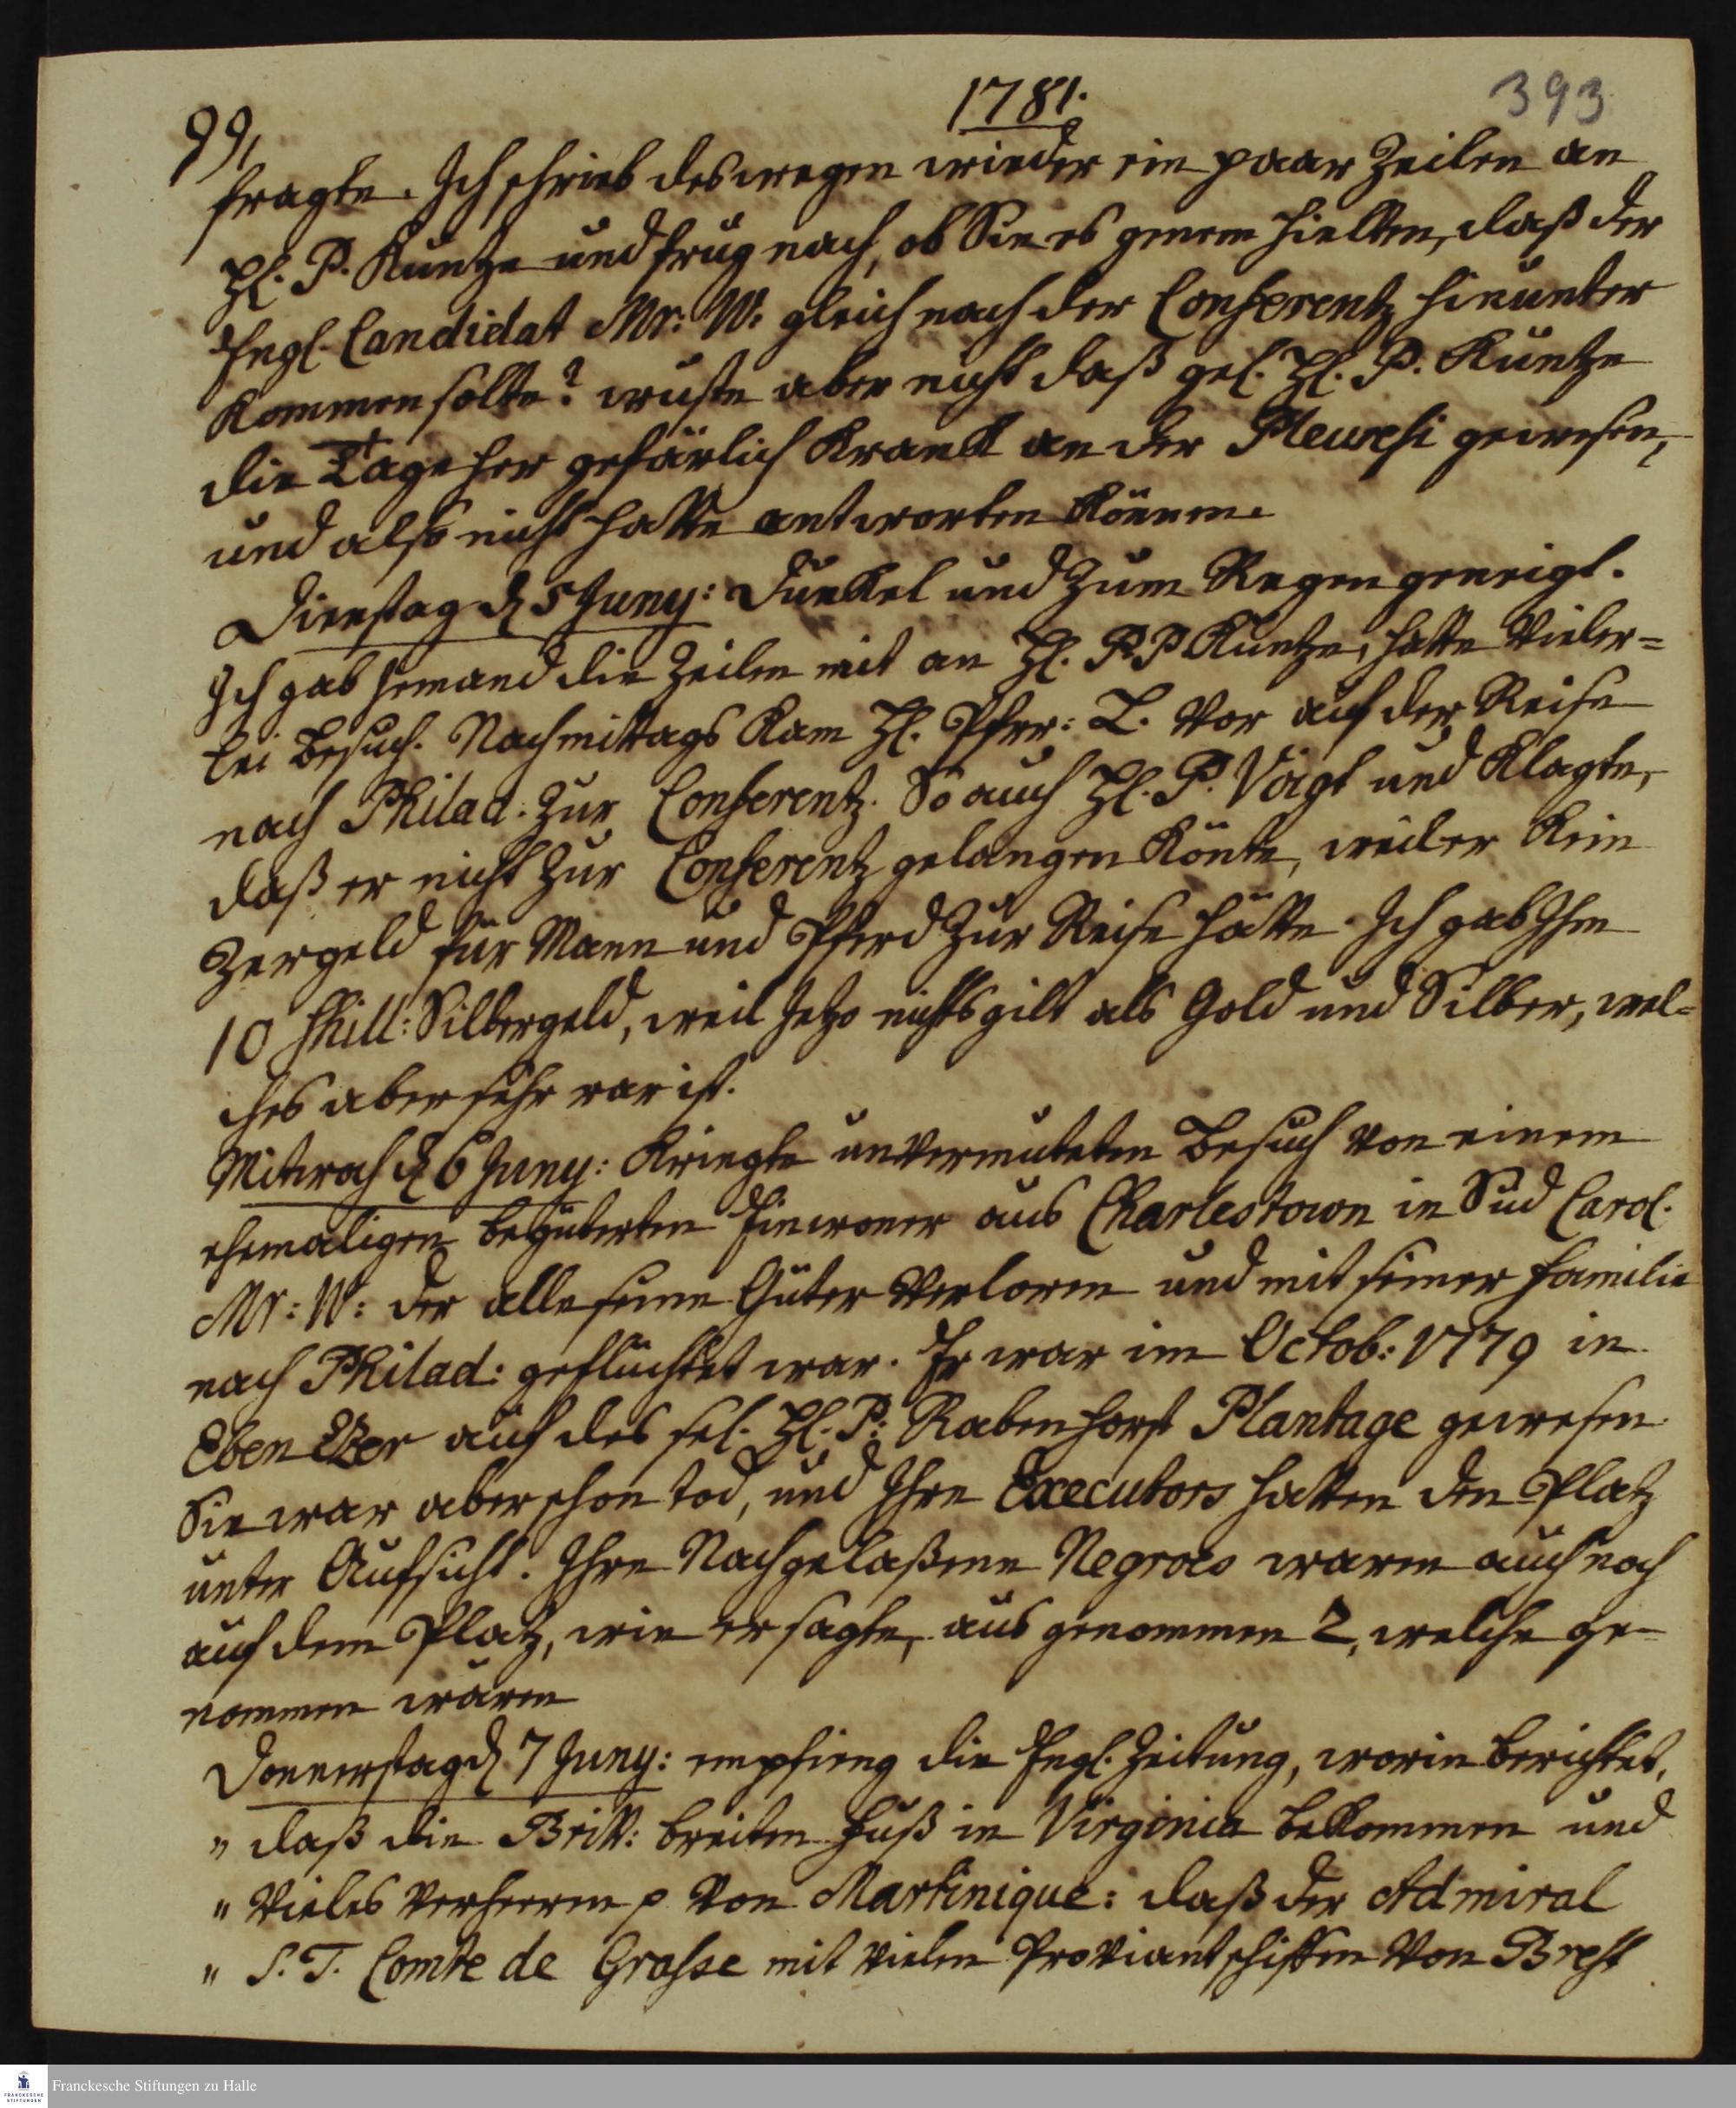 1781.
393
99,
fragte. Ich schrieb deswegen wieder ein paar Zeilen an
H. P. Kuntze und frug nach, ob Sie es genem hielten, daß der
Engl. Candidat Mr: W: gleich nach der Conferentz hinunter
kommen solte? wuste aber nicht daß gel. H. P. Kuntze
die Tage her gefärlich krank an der Pleuresi gewesen,
und also nicht hatte antworten können.
Dienstag d 5 Juny: dunkel und zum Regen geneigt.
Ich gab jemand die Zeilen mit an H. P. P Kuntze, hatte vieler=
lei Besuch. Nachmittags kam H. Pfrr: L. vor auf der Reise
nach Philad: zur Conferentz. So auch H. P. Voigt und klagte,
daß er nicht zur Conferentz gelangen könte, weil er kein
Zergeld für Mann und Pferd zur Reise hätte. Ich gab Ihm
10 shill: Silbergeld, weil jetzo nichts gilt als Gold und Silber, wel=
ches aber sehr rar ist.
Mitwoch d 6 Juny: kriegte unvermuteten Besuch von einem
ehemaligen begüterten Einwoner aus Charlestown in Sud Carol.
Mr: W: der alle seine Güter verloren und mit seiner Familie
nach Philad: geflüchtet war. Er war im Octob: 1779 in
Eben Ezer auf des sel. H. P. Rabenhorst Plantage gewesen.
Sie war aber schon tod, und Ihre Executors hatten den Platz
unter Aufsicht. Ihre Nachgelaßene Negroes waren auch noch
auf dem Platz, wie er sagte, aus genommen 2, welche ge-
nommen wären
Donnerstag d 7 Juny: empfieng die Engl. Zeitung, worin berichtet,
" daß die Britt: breiten Fuß in Virginia bekommen und
" vieles verheeren p von Martinique: daß der Admiral
" S. T. Comte de Grasse mit vielen Proviantschiffen von Brest
Franckesche Stiftungen zu Halle